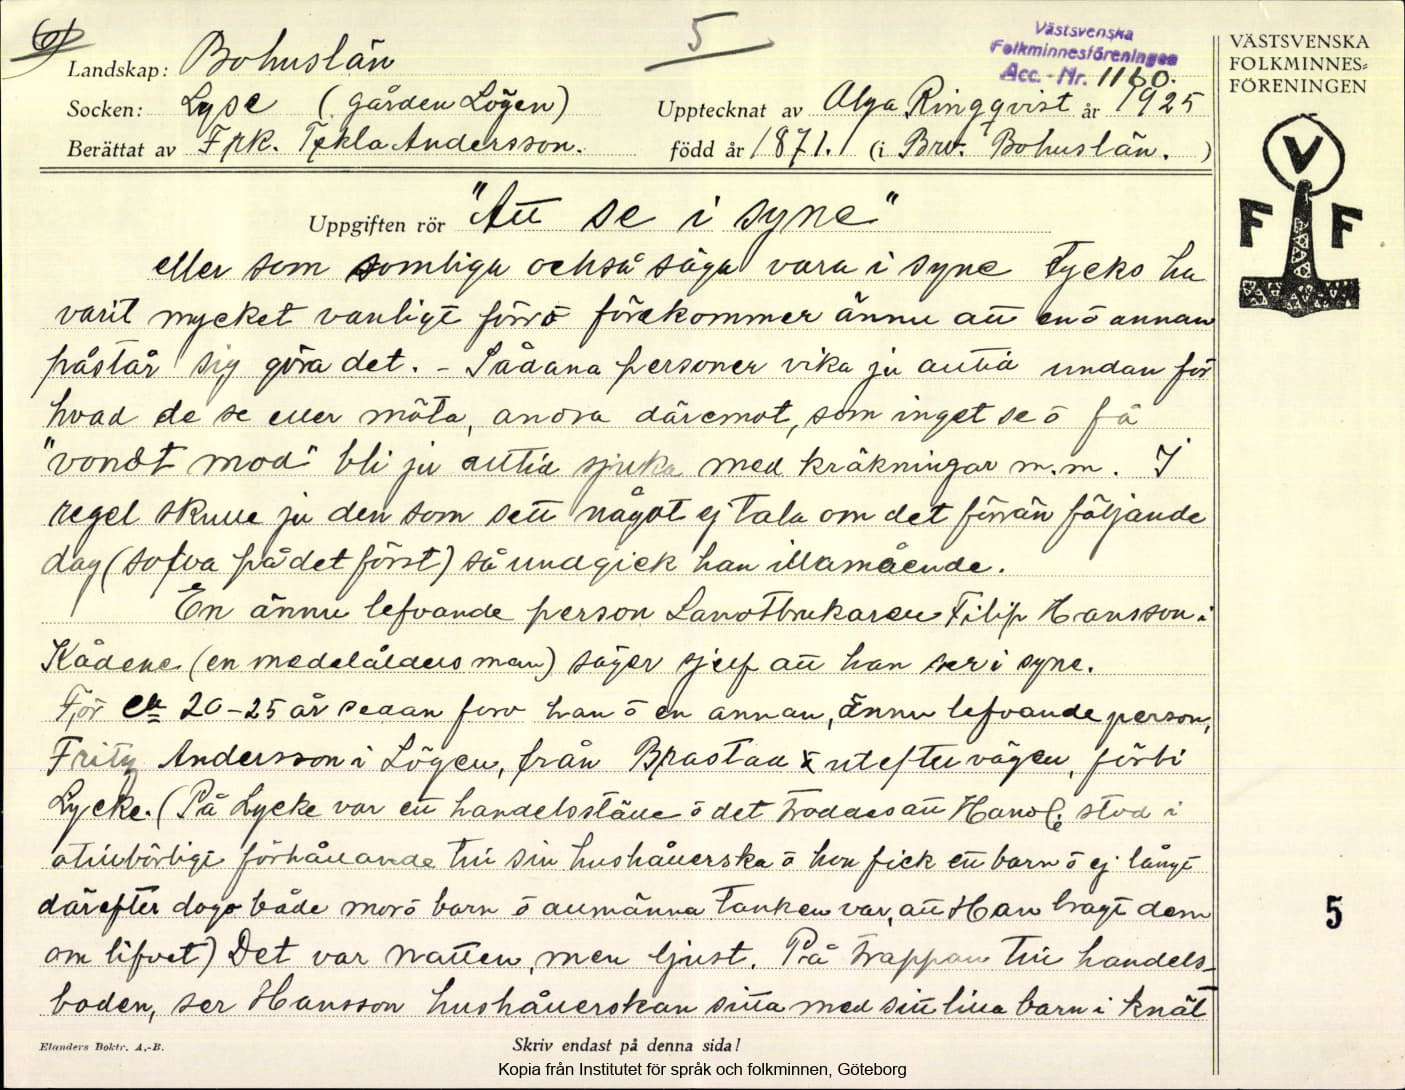 6)
5
Västsvenska
Folkminnesföreningen
Acc.-Nr. 1160.
Landskap: Bohuslän
Socken: Lyse (gården Lögen)
Upptecknat av Olga Ringqvist år 1925
Berättat av Frk. Tekla Andersson.
född år 1871. (i Bro. Bohuslän.)
VÄSTSVENSKA
FOLKMINNES=
FÖRENINGEN
V
F F
Uppgiften rör "Att se i syne"
eller som somliga också säga vara i syne tycks ha
varit mycket vanligt förr o förekommer ännu att en o annan
påstår sig göra det. - Sådana personer vika ju alltid undan för
hvad de se eller möta, andra däremot, som inget se o få
"vondt mod" bli ju alltid sjuka med kräkningar m.m. I
regel skulle ju den som sett något ej tala om det förrän följande
dag (sofva på det först) så undgick han illamående.
En ännu lefvande person Landtbrukaren Filip Hansson i
Kådene (en medelålders man) säger sjelf att han ser i syne.
För ca 20-25 år sedan foro han o en annan, ännu lefvande person,
Fritz Andersson i Lögen, från Brastad utefter vägen, förbi
Lycke. (På Lycke var ett handelsställe o det troddes att Handl. stod i
otillbörligt förhållande till sin hushållerska o hon fick ett barn o ej långt
därefter dogo både mor o barn o allmänna tanken var, att Han bragt dem
om lifvet) Det var natten, men ljust. På trappan till handels-
boden, ser Hansson hushållerskan sitta med sitt lilla barn i knät
5
Elanders Boktr. A.-B.
Skriv endast på denna sida!
Kopia från Institutet för språk och folkminnen, Göteborg